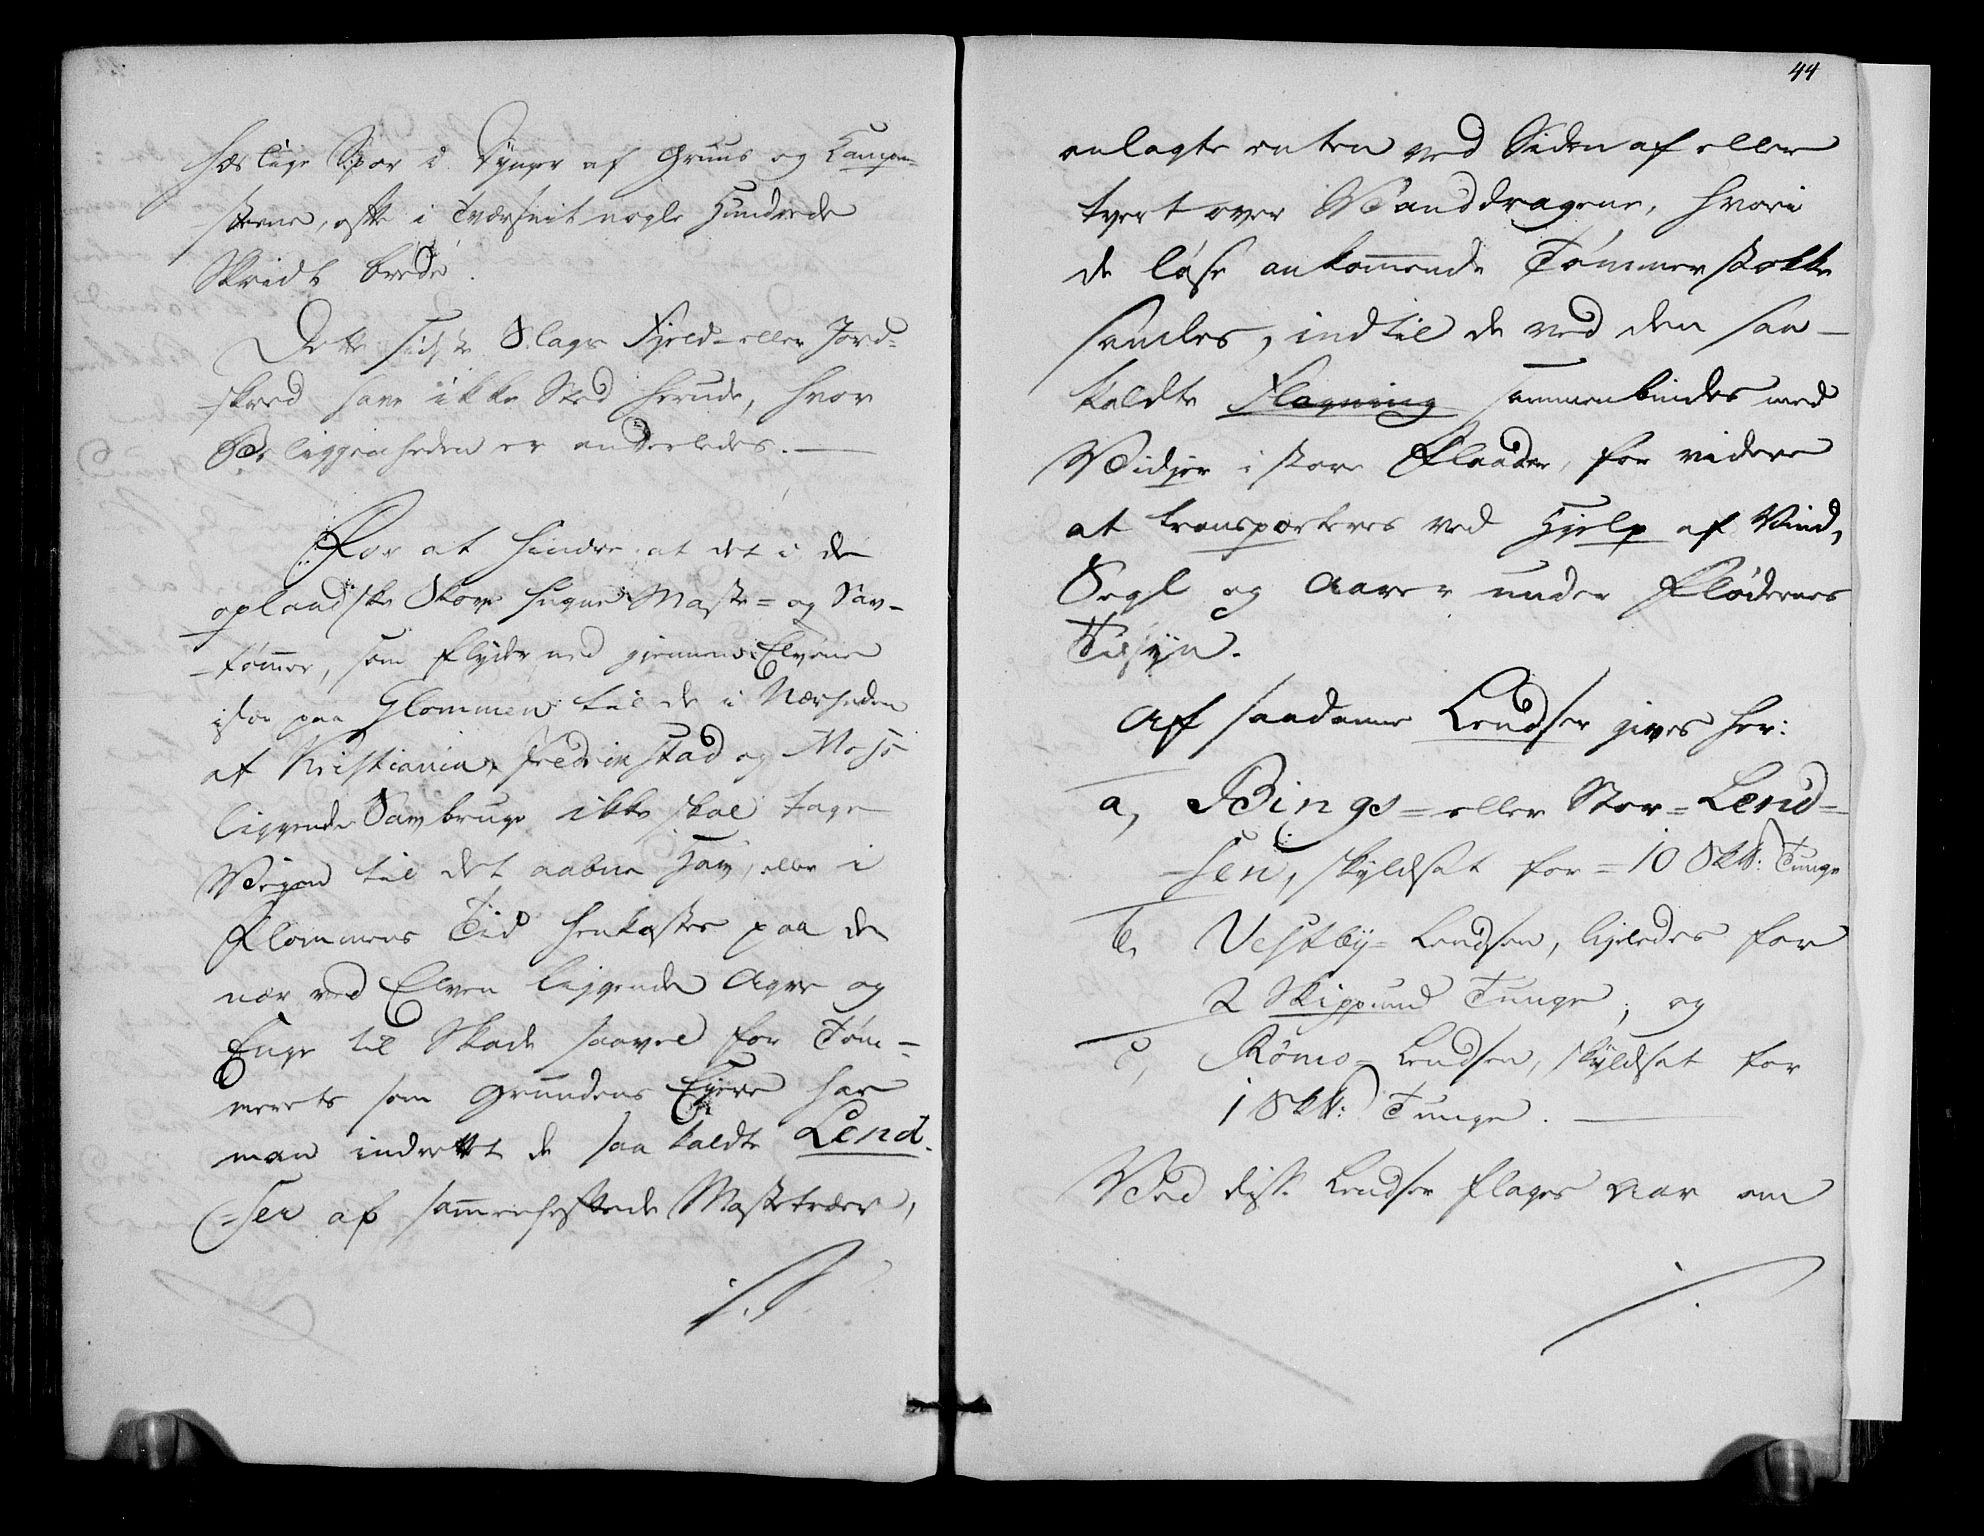 hæslige Spor i Dynger af Gruus og Kampe-
steene, ofte i Tværsnit nogle Hundrede
Skridt brede.
Dette sidste Slags Fjeld- eller Jord-
skred have ikke Sted herude, hvor
Beliggenheden er anderledes. —
For at hindre at det i de
oplandske Skove hugne Maste- og Sav-
tømmer, som flyder ned gjennem Elvene
især paa Glommen til de i Nærheden
af Kristiania, Fredrikstad og Moss
liggende Savbruge ikke skal tage
Vejen til det aabne Hav, eller i
Flommens Tid henkastes paa de
nær ved Elven liggende Agre og
Enge til Skade saavel for Tøm-
merets som Grundens Ejere har
man indrettet de saa kaldte Lend-
ser af sammenheftede Mastetræer,
44
anlagte enten ved Siden af eller
tvert over Vanddragene, hvori
de løse ankommende Tømmerstokke
samles, indtil de ved den saa-
kaldte Flagning sammenbindes med
Vidjer i store Flaader, for videre
at transporteres ved Hjelp af Vind,
Segl og Aarer under Flødernes
Tilsyn.
Af saadanne Lendser gives her:
a, Bings- eller Stor-Lend-
sen, skyldsat for = 10 Sk℔: Tunge
b, Vestby-Lendsen, ligeledes for
2 Skippund Tunge; og
c, Römo-Lendsen, skyldsat for
1 Sk℔: Tunge. —
Ved disse Lendser flages naar om